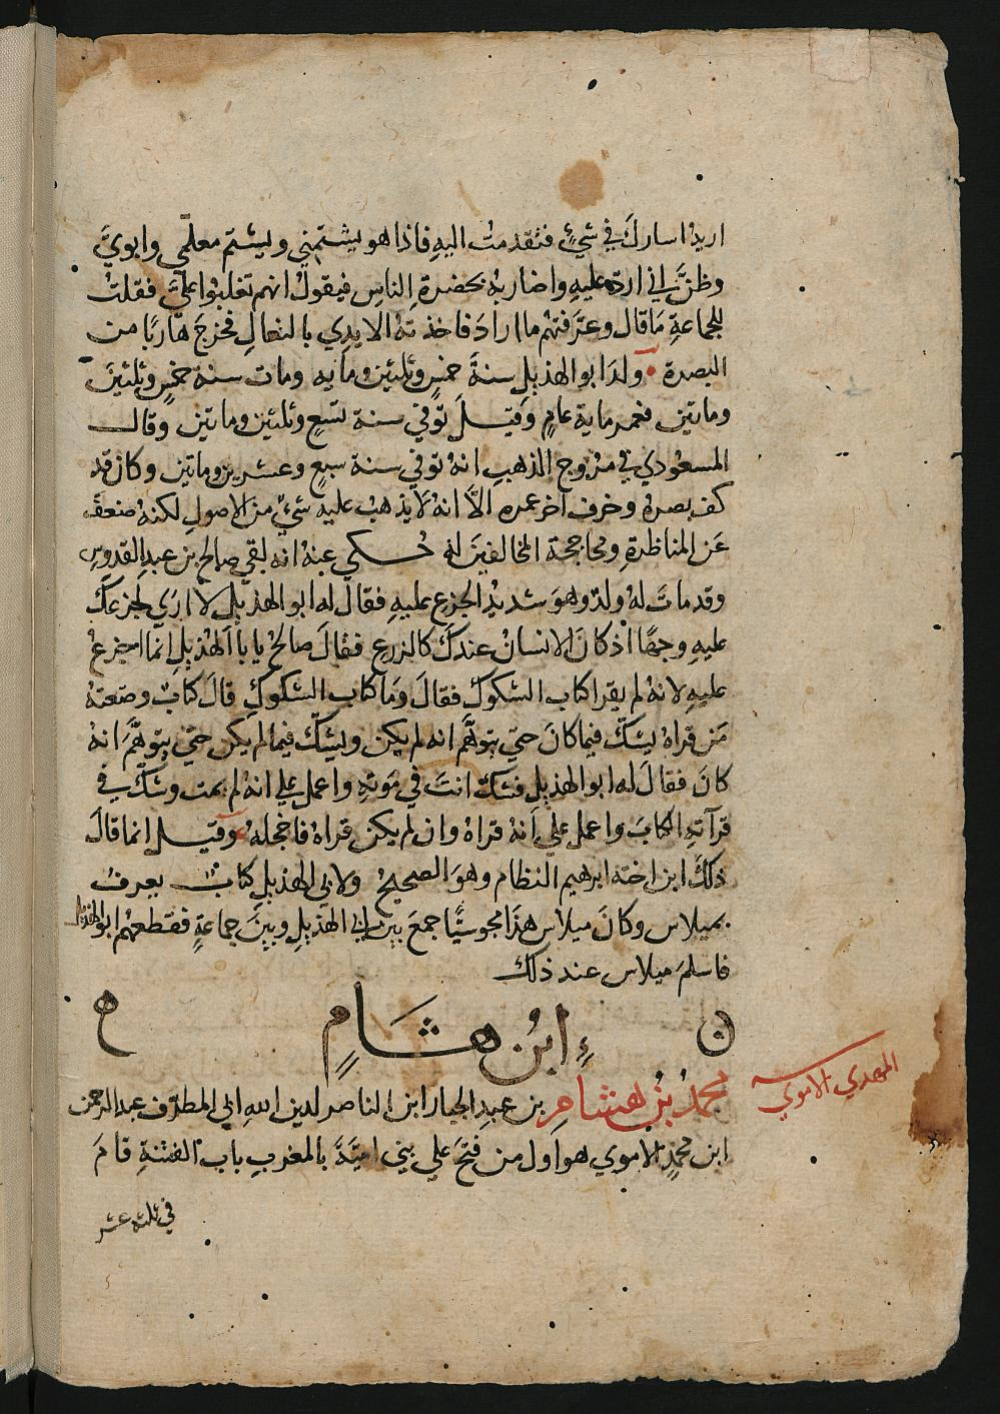 اريد اسارك في شيءٍ فتقدمتُ اليهِ فاذا هو يشتمني ويشتم معلّمي وابويَّ
وظنَّ اني اردّ عليهِ واضاربه بحضرةِ الناسِ فيقولُ انهم تغلبوا عليَّ فقلتُ
للجماعةِ مَا قال وعرّفتهُم ما ارادَ فاخذتهُ الايدِي بالنعالِ فخرجَ هَاربًا من
البصرة • ولدَ ابو الهذيلِ سنةَ خمسٍ وثلثين ومايه ومات سنة خمسٍ وثلثينَ
وماتين فعمر ماية عامٍ وقيل توُفي سنة تسعٍ وثلثين وماتين وقال
المسعُودي في مرُوج الذهبِ انهُ توفي سنة سبعٍ وعشرين وماتين وكان قد
كف بصرهُ وخرف اخر عمره الاَّ انهُ لا يذهبُ عليهِ شيءٌ من الاصولِ لكنهُ ضعفَ
عَن المناظرةِ ومحاججة المخالفينَ لهُ حُكي عنهُ انه لقي صالح بن عبدِ القدوسِ
وقد ماتَ لهُ ولدٌ وهوَ شديدُ الجزعِ عليهِ فقالَ له ابو الهذيلِ لا ارَي لجزعِكَ
عليهِ وجهًا اذ كانَ الانسانُ عندكَ كالزرعِ فقالَ صالحُ يا با الهُذيلِ انمّا اجزعُ
عليهِ لانهُ لم يقرا كتاب الشكوكِ فقالَ وَما كتاب الشكوكِ قالَ كتابٌ وضعتهُ
مَن قراهُ يشكّ فيما كانَ حتيّ يتوهَّم انه لم يكن ويشكّ فيما لم يكن حتيّ يتوهَّمَ انهُ
كانَ فقالَ له ابو الهذيلِ فشكّ انتَ في مَوتهِ واعمل علي انهُ لم يمت وشكّ في
قرآتهِ الكتابَ واعمل علي اَنهُ قراهُ وان لم يكن قراهُ فاخجلهُ وَقيل انما قالَ
ذلكَ ابن اخته ابرهيم النظام وهوَ الصحيحُ ولابي الهذيلِ كتابٌ يعرفُ
بميلاس وكانَ ميلاس هذَا مجوسيًّا جمعَ بينَ ابي الهذيلِ وبينَ جماعةٍ فقطعهُم ابو الهذيل
فاسلمَ ميلاس عند ذلك
ن ابنُ هشَامٍ ح
المهدي الاموي
محمدُ بنُ هشامِ بن عبدِ الجبار ابن الناصر لدين اللهِ ابي المطرّف عبد الرحمن
ابن محمدٍ الاموي هو اول من فتحَ علي بني اميّةَ بالمغربِ باب الفتنةِ قامَ
في ثلثه عشر